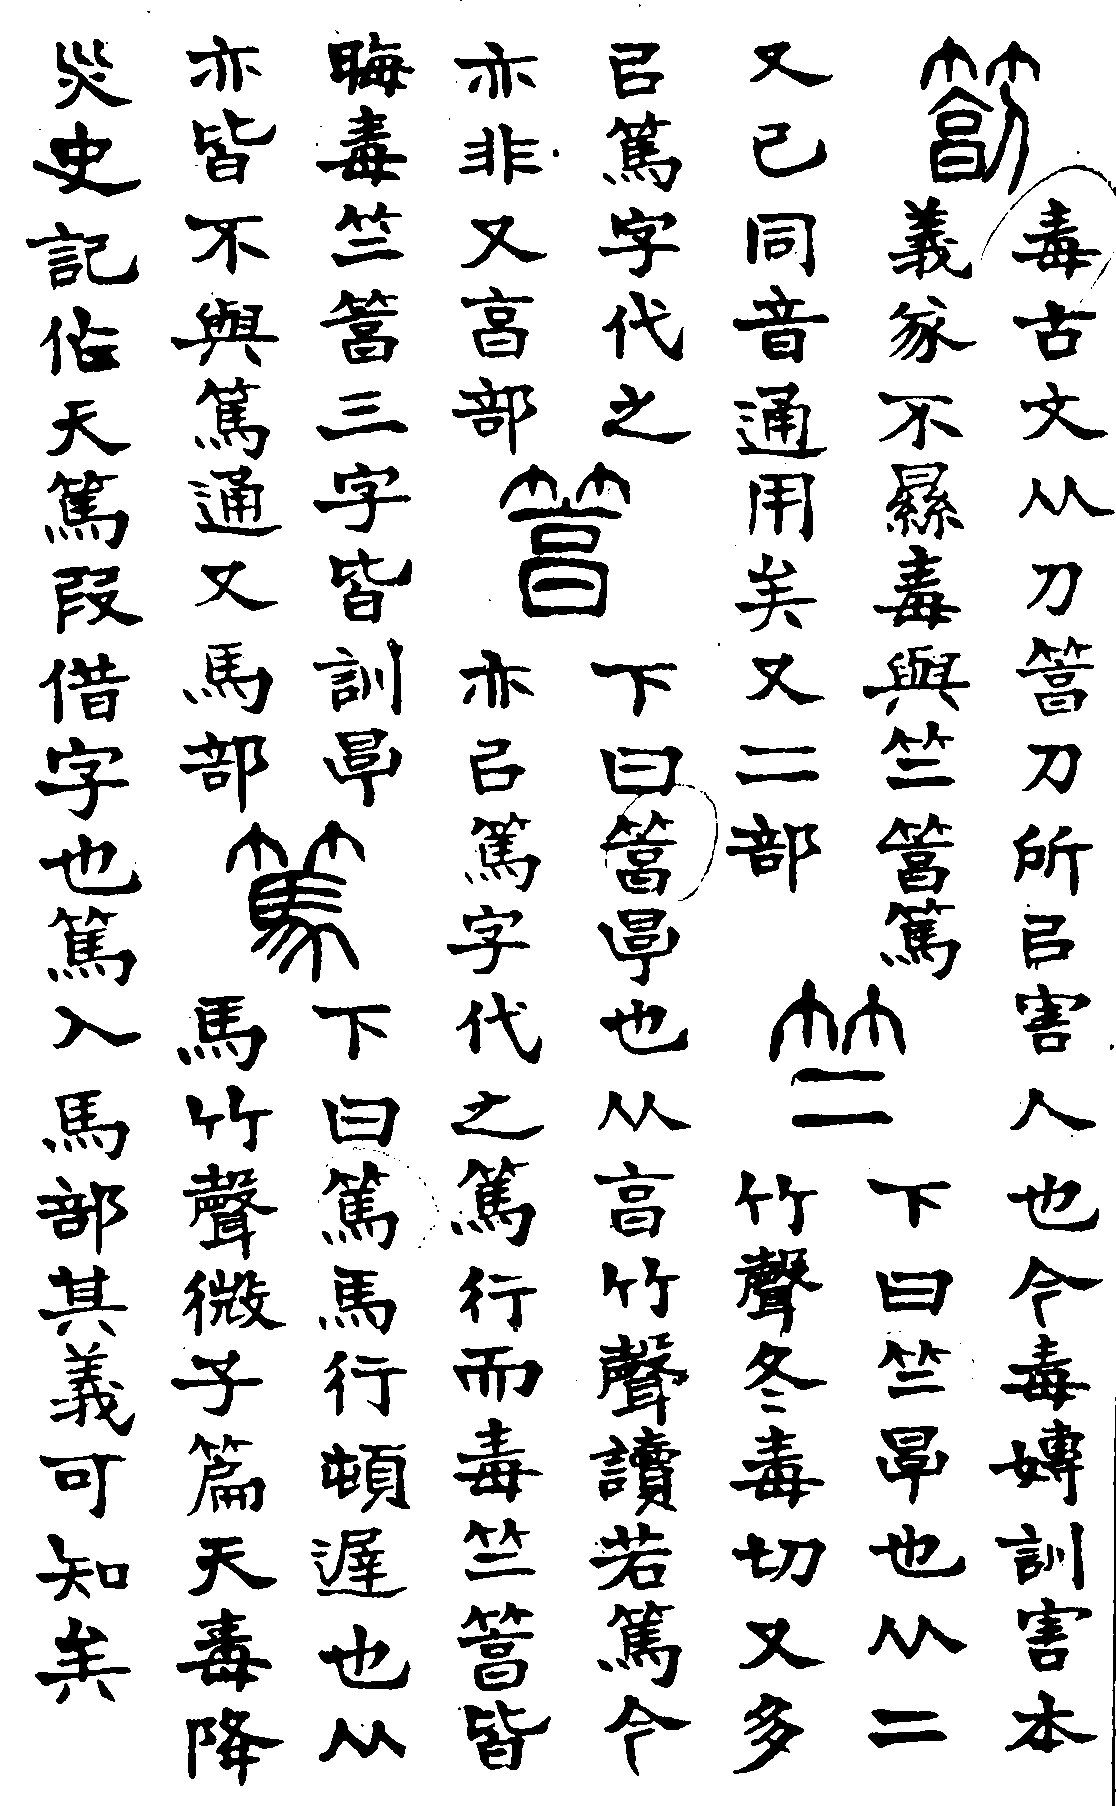 毒古文从刀䈞刀所㠯害人也今毒嫥訓害本
義㒸不㬎毒與竺䈞篤
又已同音通用矣又二部
竺
下曰竺㫗也从二
竹聲冬毒切又多
㠯篤字代之
亦非又亯部
䈞
下曰䈞㫗也从亯竹聲讀若篤今
亦㠯篤字代之篤行而毒竺䈞皆
晦毒竺䈞三字皆訓㫗
亦皆不與篤通又馬部
篤
下曰篤馬行頓遲也从
馬竹聲微子篇天毒降
災史記作天篤叚借字也篤入馬部其義可知矣